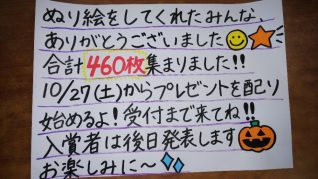 ぬり絵をしてくれたみんな、
ありがとうございました
合計460枚集まりました!!
10/27(土)からプレゼントを配り
始めるよ!受付まで来てね!!
入賞者は後日発表します
お楽しみに〜